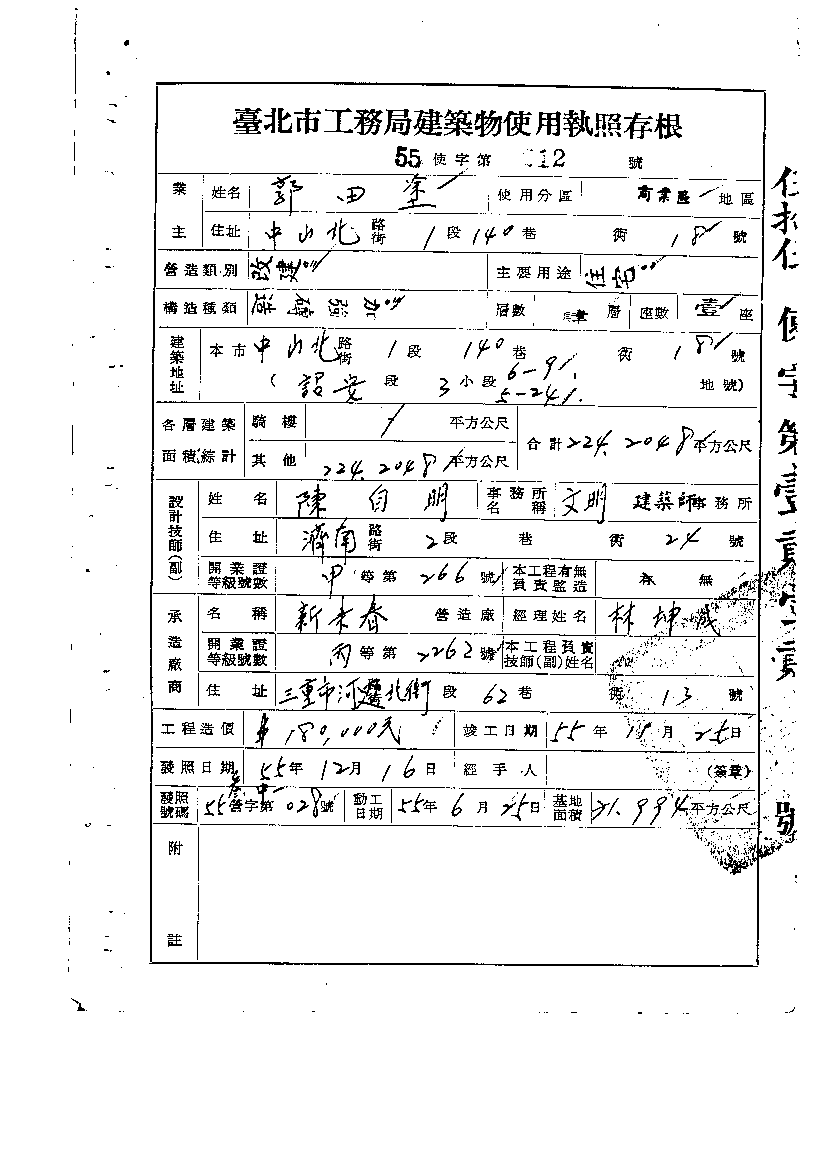 臺北市工務局建築物使用執照存根
55 使字第 012 號
業主 姓名 郭田塗 使用分區 商業區 地區
住址 中山北 路街 1 段 140 巷 衖 18 號
營造類別 改建 主要用途 住宅
構造種類 加強磚造 層數 層 座數 壹 座
建築地址 本市 中山北 路街 1 段 140 巷 衖 18 號
( 段 3 小段 6-91. 5-241. 地號)
各層建築面積綜計 騎樓 / 平方公尺 合計 224.2048 平方公尺
其他 224.2048 平方公尺
設計技師(副) 姓名 陳自明 事務所名稱 文明 建築師事務所
住址 濟南 路街 2 段 巷 衖 24 號
開業證等級號數 甲 等第 266 號 本工程有無負責監造 有 無
承造廠商 名稱 新 春 營造廠 經理姓名 林坤
開業證等級號數 丙 等第 2262 號 本工程負責技師(副)姓名
住址 三重市河邊北街 段 62 巷 衖 13 號
工程造價 $180,000元 竣工日期 55 年 10 月 25 日
發照日期 55 年 12 月 16 日 經手人 (簽章)
發照號碼 55 營字第 028 號 動工日期 55 年 6 月 25 日 基地面積 21.994 平方公尺
附註
使字第壹 號